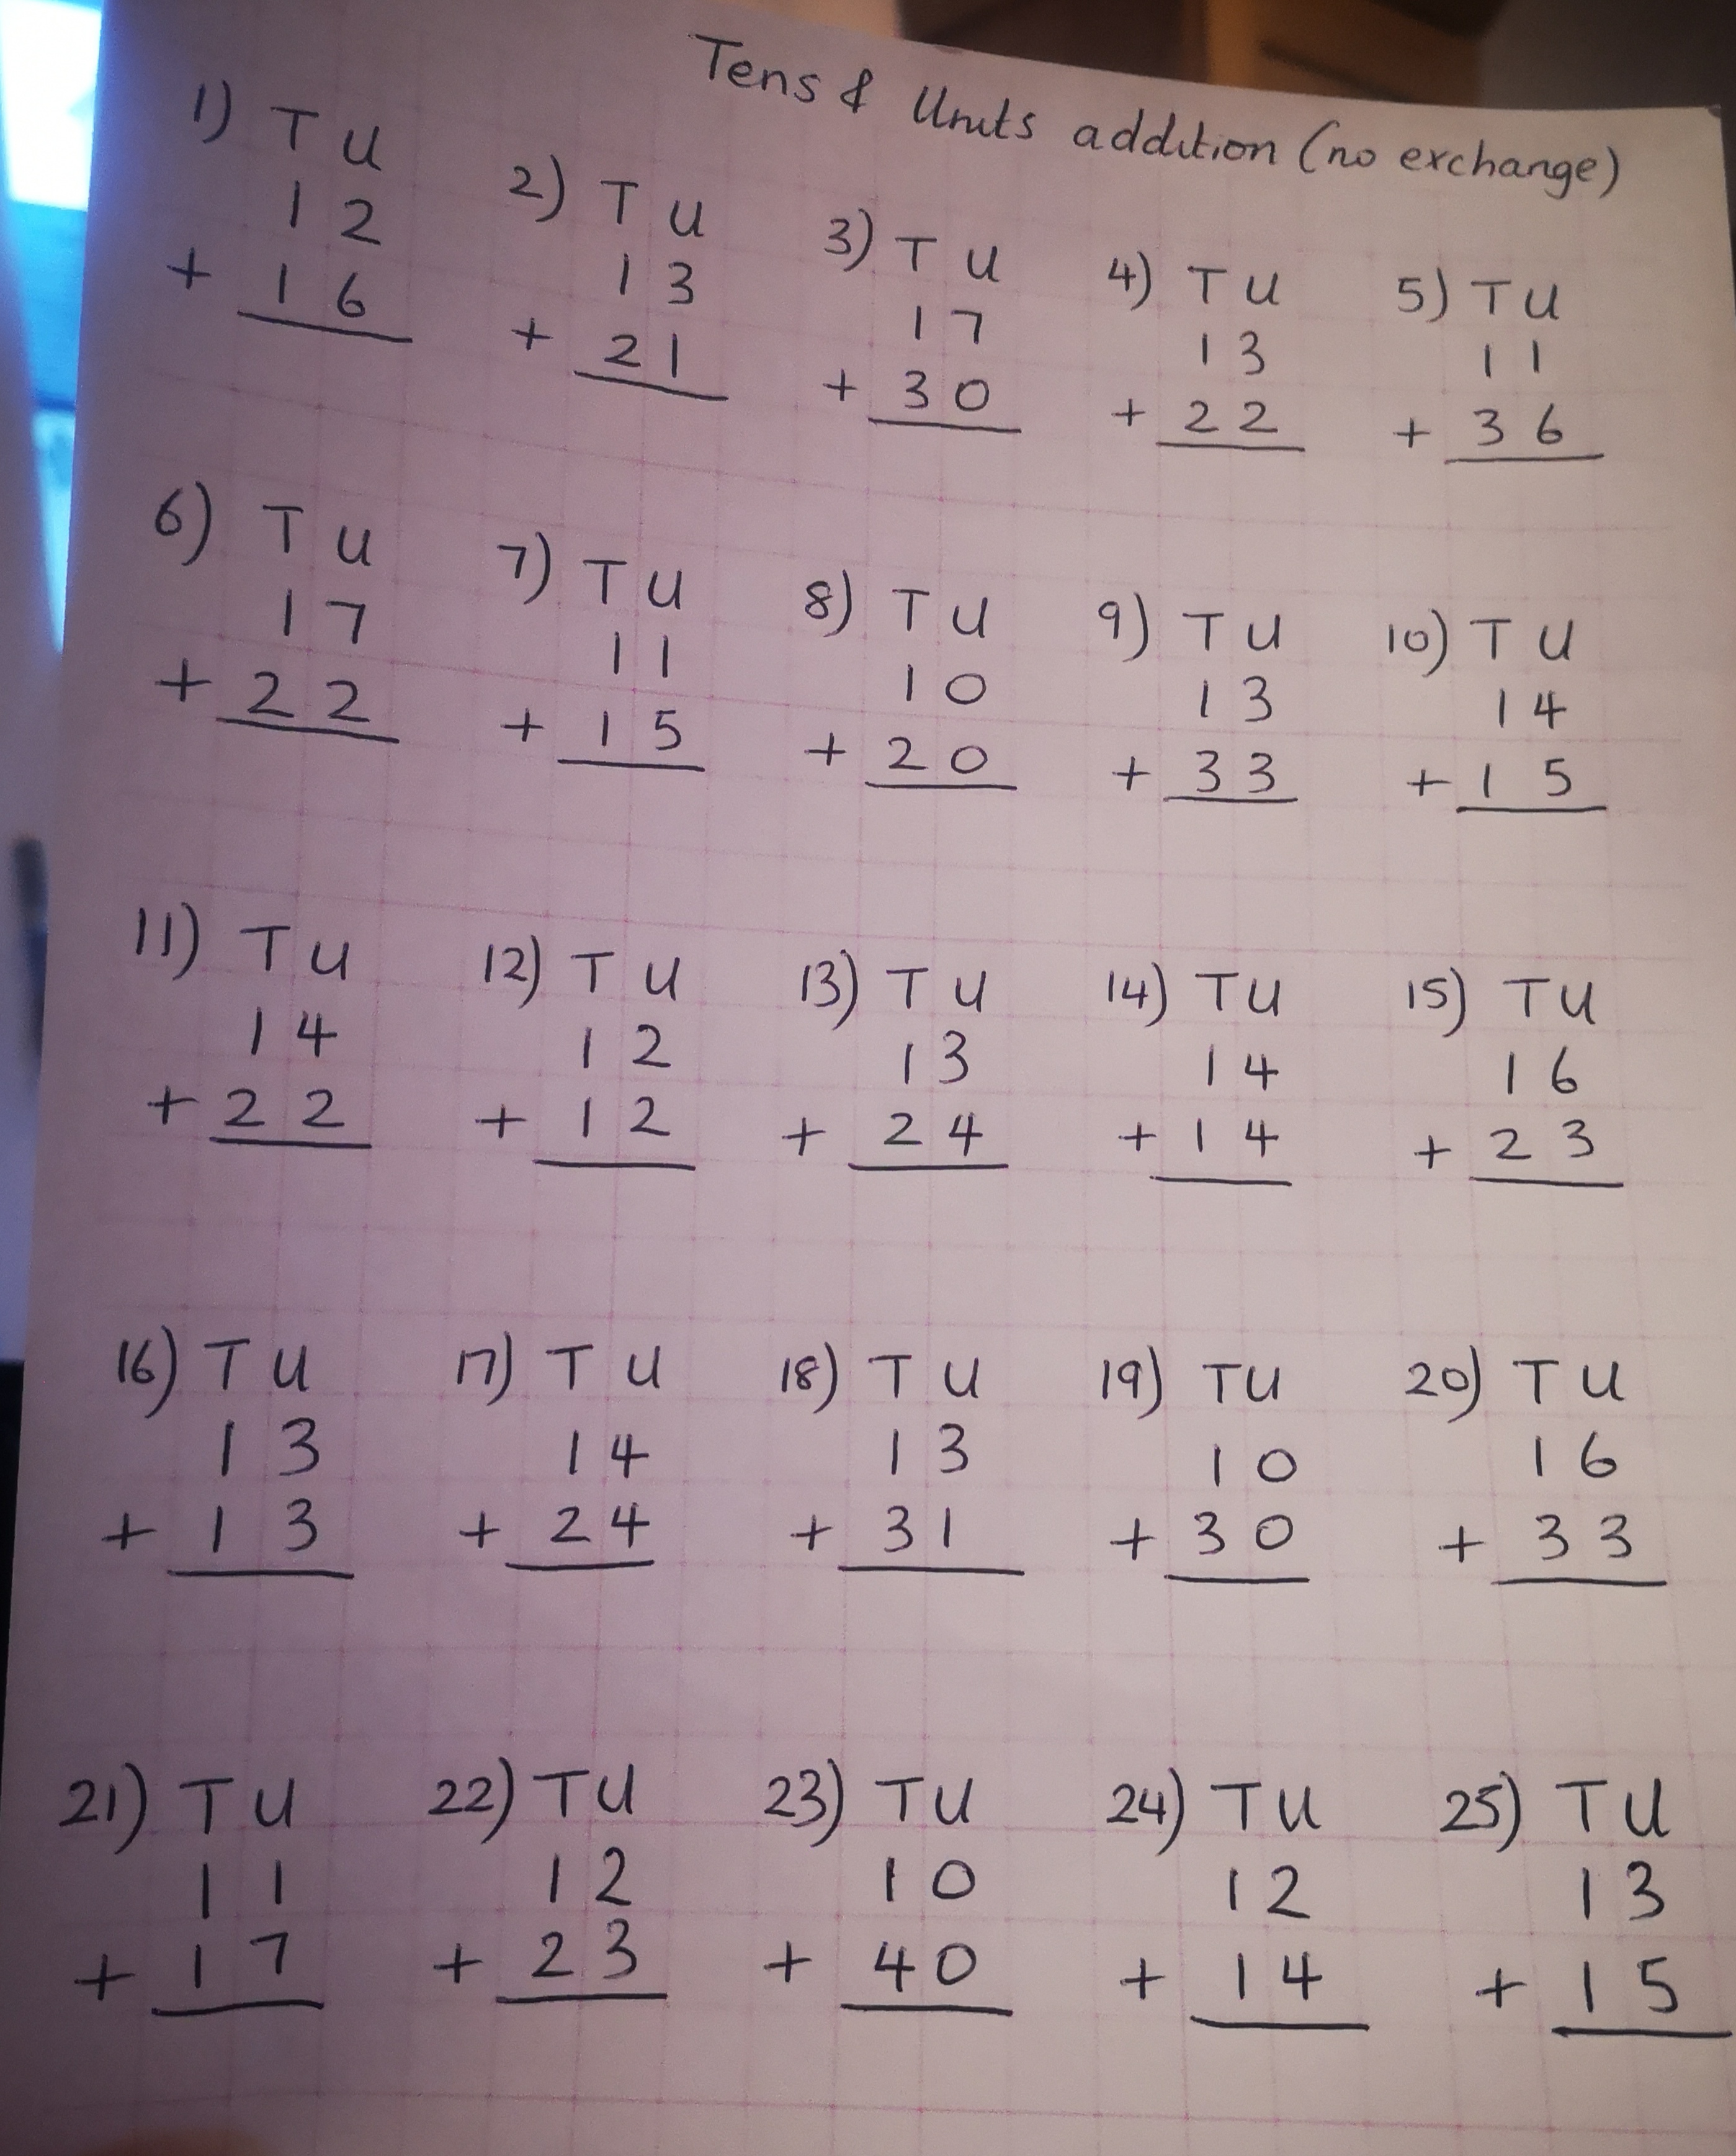 Tens & Units addition (no exchange)
1) T U
1 2
+ 1 6
2) T U
1 3
+ 2 1
3) T U
1 7
+ 3 0
4) T U
1 3
+ 2 2
5) T U
1 1
+ 3 6
6) T U
1 7
+ 2 2
7) T U
1 1
+ 1 5
8) T U
1 0
+ 2 0
9) T U
1 3
+ 3 3
10) T U
1 4
+ 1 5
11) T U
1 4
+ 2 2
12) T U
1 2
+ 1 2
13) T U
1 3
+ 2 4
14) T U
1 4
+ 1 4
15) T U
1 6
+ 2 3
16) T U
1 3
+ 1 3
17) T U
1 4
+ 2 4
18) T U
1 3
+ 3 1
19) T U
1 0
+ 3 0
20) T U
1 6
+ 3 3
21) T U
1 1
+ 1 7
22) T U
1 2
+ 2 3
23) T U
1 0
+ 4 0
24) T U
1 2
+ 1 4
25) T U
1 3
+ 1 5